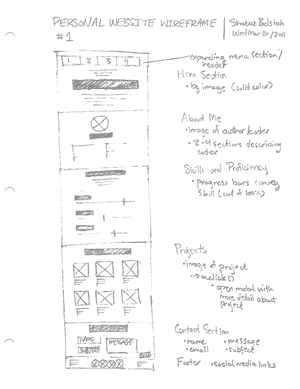 PERSONAL WEBSITE WIREFRAME
#1
1 2 3 4
expanding menu section/
header
Hero Section
• bg image (solid color)
About Me
• image of author/coder
• 2-4 sections describing
coder
Skills and Proficiency
• progress bars convey
skill (out of 100%)
Projects
• image of project
→ onclick()
• open modal with
more detail about
project
Contact Section
• name • message
• email • subject
Footer • social media links
NAME
MESSAGE